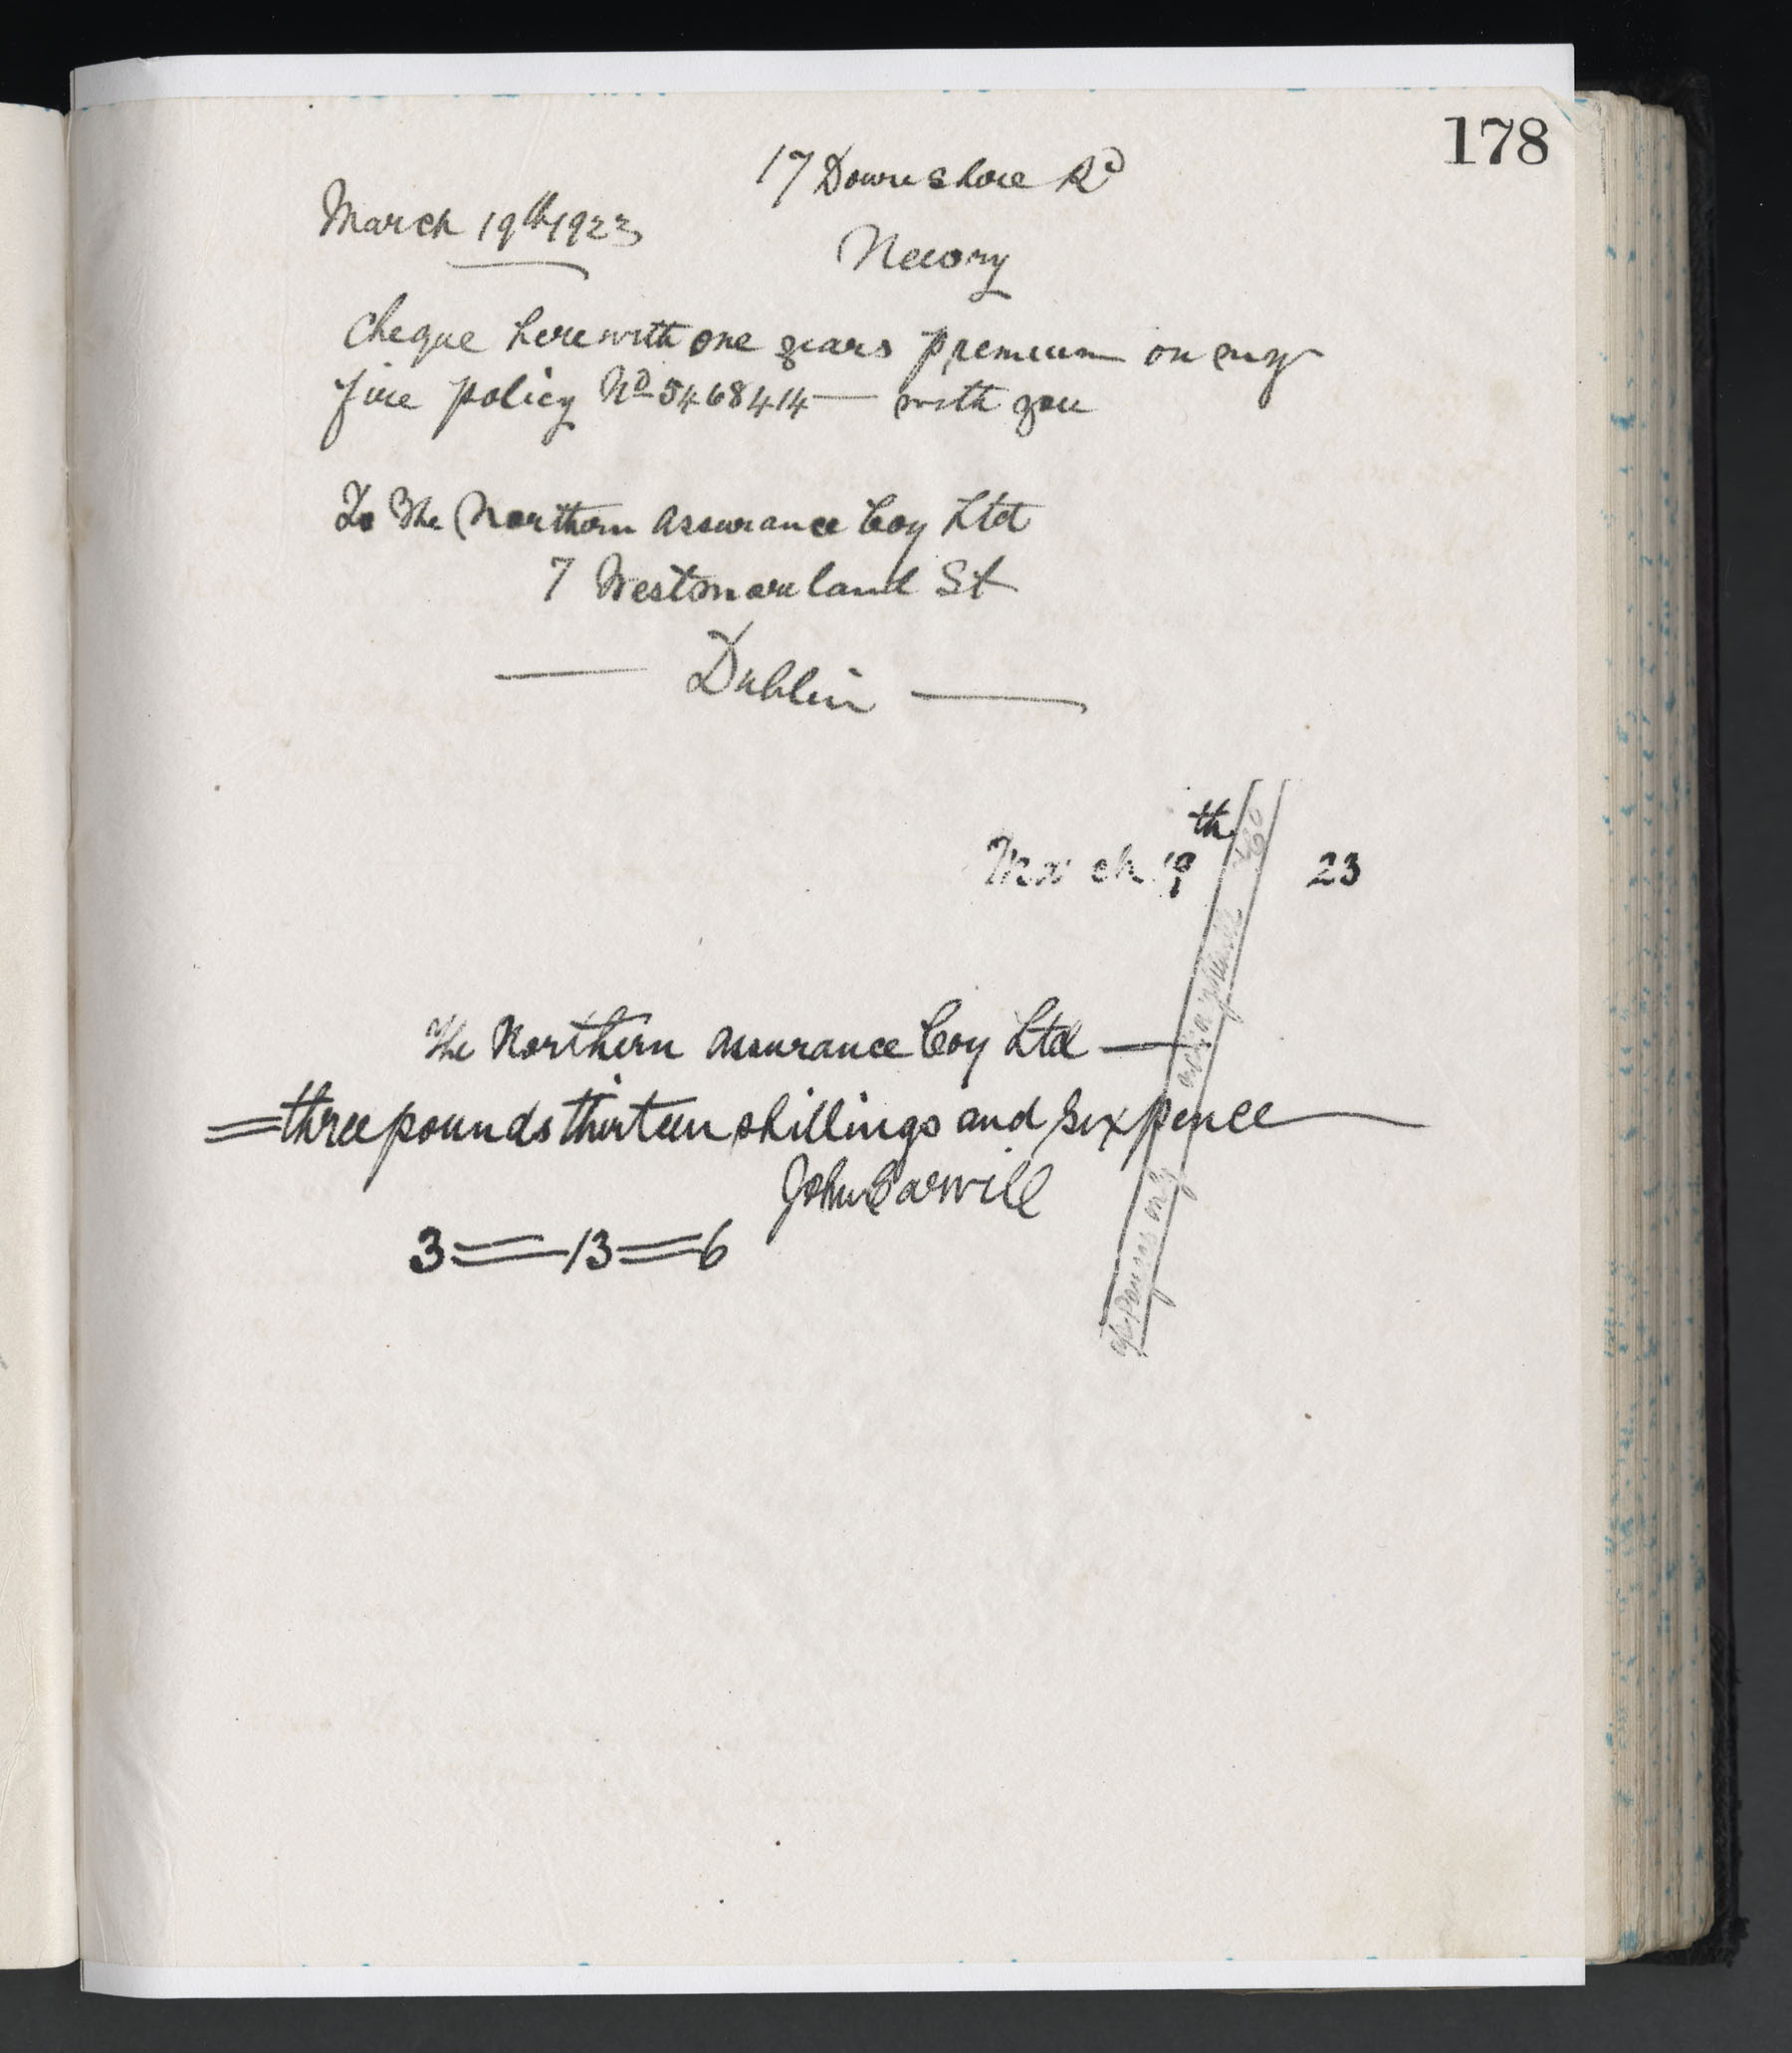 178
17 Downshire Rd
March 19th 1923
Newry
Cheque herewith one years premium on my
fire policy No 5468414 — with you
To The Northern Assurance Coy Ltd
7 Westmoreland St
— Dublin —
March 19th 23
The Northern Assurance Coy Ltd —
= three pounds thirteen shillings and sixpence —
John Carvill
3 = 13 = 6
a/c Payees only